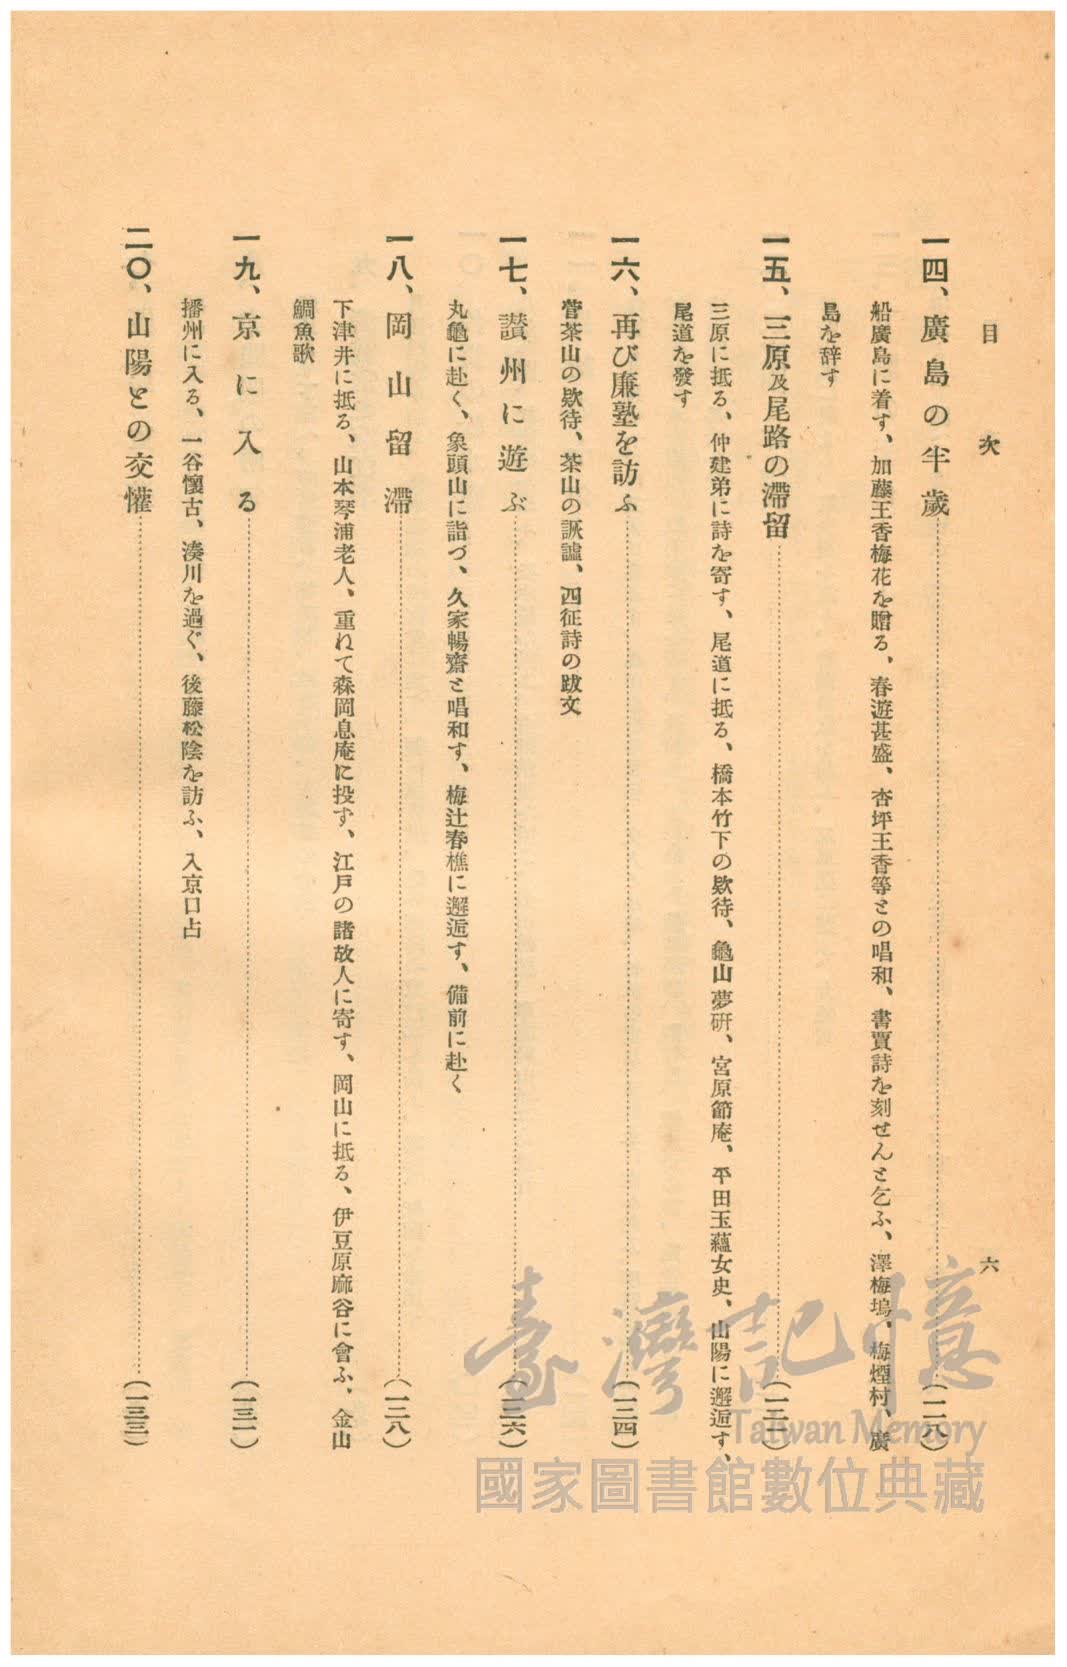 目次 六
一四、廣島の半歲 (一一八)
船廣島に着す、加藤王香梅花を贈る、春遊甚盛、杏坪王香等との唱和、書賈詩を刻せんと乞ふ、澤梅塢、梅煙村、廣
島を辞す
一五、三原及尾路の滯留 (一二一)
三原に抵る、仲建弟に詩を寄す、尾道に抵る、橋本竹下の欵待、龜山夢研、宮原節庵、平田玉蘊女史、山陽に邂逅す、
尾道を發す
一六、再び廉塾を訪ふ (一二四)
菅茶山の欵待、茶山の詼謔、四征詩の跋文
一七、讃州に遊ぶ (一二六)
丸龜に赴く、象頭山に詣づ、久家暢齋と唱和す、梅辻春樵に邂逅す、備前に赴く
一八、岡山留滯 (一二八)
下津井に抵る、山本琴浦老人、重ねて森岡息庵に投ず、江戸の諸故人に寄す、岡山に抵る、伊豆原麻谷に會ふ、金山
鯛魚歌
一九、京に入る (一三一)
播州に入る、一谷懷古、湊川を過ぐ、後藤松陰を訪ふ、入京口占
二〇、山陽との交懽 (一三三)
臺灣記憶
Taiwan Memory
國家圖書館數位典藏